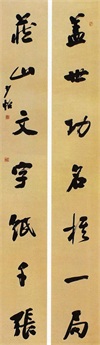 蓋世功名棋一局
藏山文字紙千張